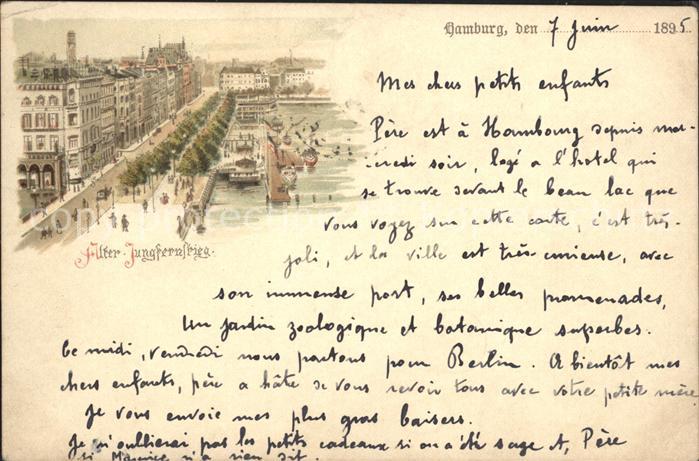 Hamburg, den 7 Juin 1895
Mes chers petits enfants
Père est à Hambourg depuis mer-
credi soir, logé a l'hotel qui
se trouve devant le beau lac que
vous voyez sur cette carte, c'est très-
joli, et la ville est très-curieuse, avec
son immense port, ses belles promenades,
Un jardin zoologique et botanique superbes.
Ce midi, vendredi nous partons pour Berlin. A bientôt mes
chers enfants, père a hâte de vous revoir tous avec votre petite mère
Je vous envoie mes plus gros baisers.
Je n'oublierai pas les petits cadeaux si on a été sage Père
si Maurice n'a rien dit.
Alter-Jungfernstieg.